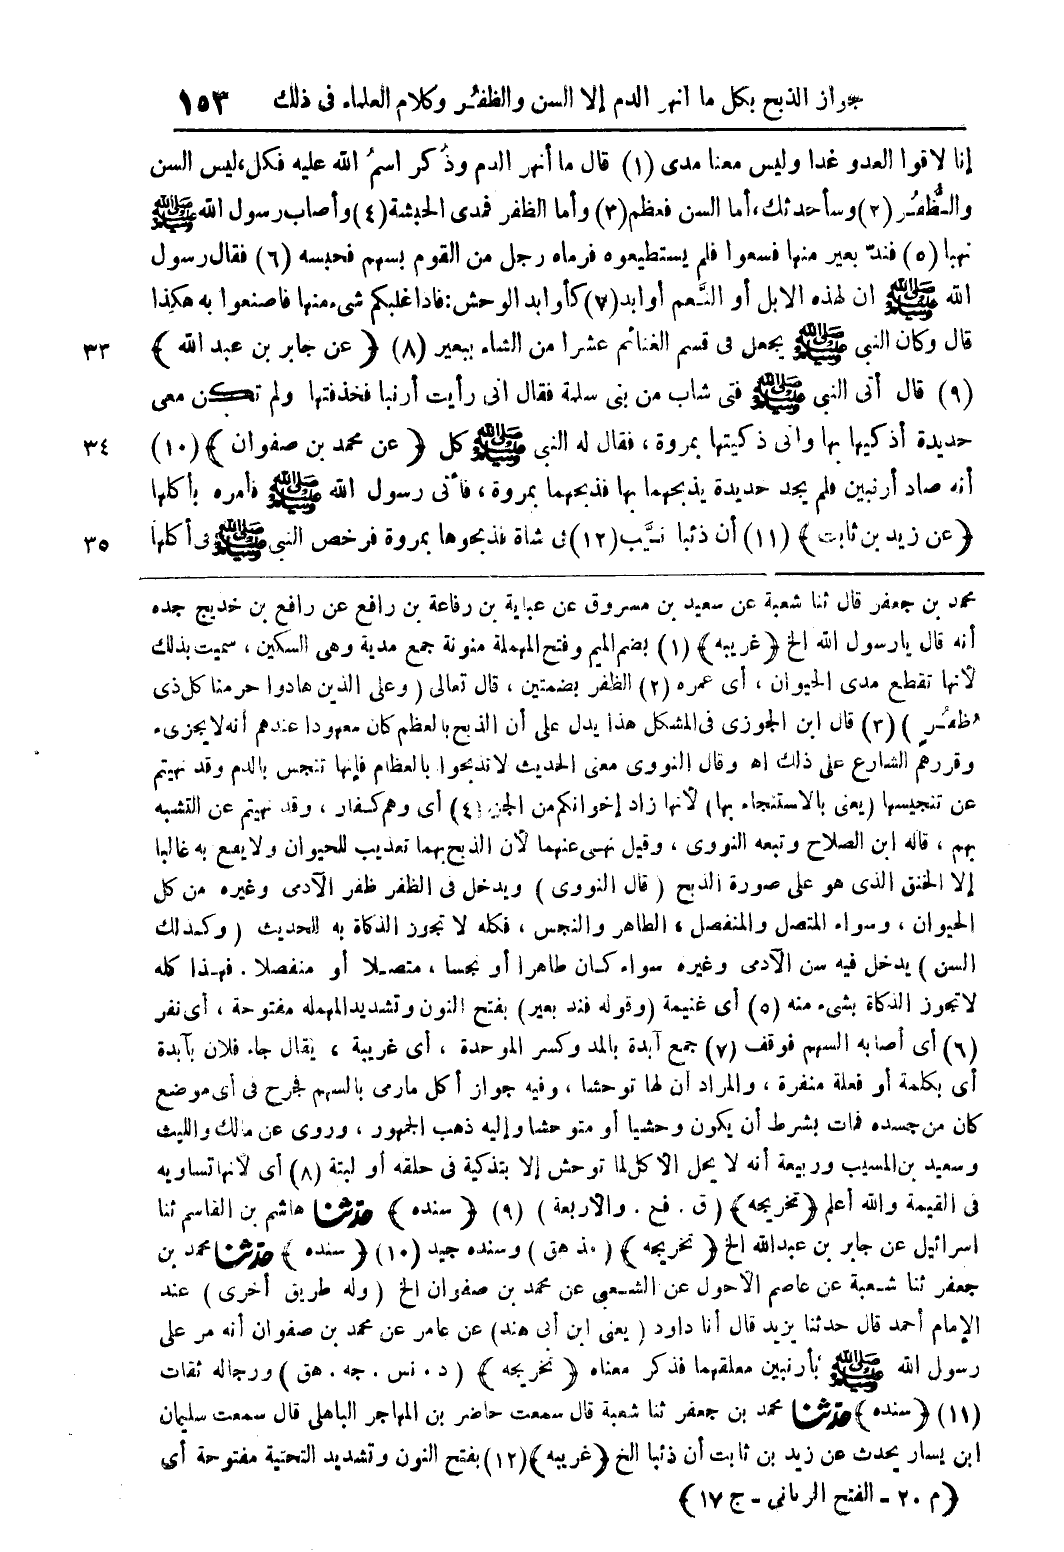 جواز الذبح بكل ما انهر الدم إلا السن والظفر وكلام العلماء فى ذلك ١٥٣
إنا لاقوا العدو غدا وليس معنا مدى (١) قال ما أنهر الدم وذُكر اسمُ الله عليه فكل، ليس السن
والـظُّفُـر (٢) وسأحدثك، أما السن فعظم (٣) وأما الظفر فمدى الحبشة (٤) وأصاب رسول الله ﷺ
نهبا (٥) فندّ بعير منها فسعوا فلم يستطيعوه فرماه رجل من القوم بسهم فحبسه (٦) فقال رسول
الله ﷺ ان لهذه الابل أو النَّعم أوابد (٧) كأوابد الوحش: فاذا غلبكم شىء منها فاصنعوا به هكذا
قال وكان النبي ﷺ يجعل فى قسم الغنائم عشرا من الشاء ببعير (٨) ﴿ عن جابر بن عبد الله ﴾ ٣٣
(٩) قال أتى النبي ﷺ فتى شاب من بنى سلمة فقال انى رأيت أرنبا فخذفتها ولم تـكن معى
حديدة أذكيها بها وانى ذكيتها بمروة، فقال له النبى ﷺ كل ﴿ عن محمد بن صفوان ﴾ (١٠) ٣٤
أنه صاد أرنبين فلم يجد حديدة يذبحهما بها فذبحهما بمروة، فأتى رسول الله ﷺ فأمره بأكلها
﴿ عن زيد بن ثابت ﴾ (١١) أن ذئبا نـيَّب (١٢) فى شاة فذبحوها بمروة فرخص النبى ﷺ فى أكلها ٣٥
محمد بن جعفر قال ثنا شعبة عن سعيد بن مسروق عن عباية بن رفاعة بن رافع عن رافع بن خديج جده
أنه قال يارسول الله الخ ﴿ غريبه ﴾ (١) بضم الميم وفتح المهملة منونة جمع مدية وهى السكين، سميت بذلك
لأنها تقطع مدى الحيوان، أى عمره (٢) الظفر بضمتين، قال تعالى (وعلى الذين هادوا حرمنا كل ذى
ظفُـرٍ) (٣) قال ابن الجوزى فى المشكل هذا يدل على أن الذبح بالعظم كان معهودا عندهم أنه لا يجزىء
وقررهم الشارع على ذلك اه وقال النووى معنى الحديث لا تذبحوا بالعظام فإنها تنجس بالدم وقد نهيتم
عن تنجيسها (يعنى بالاستنجاء بها) لأنها زاد إخوانكم من الجن (٤) أى وهم كـفار، وقد نهيتم عن التشبه
بهم، قاله ابن الصلاح وتبعه النووى، وقيل نهـى عنهما لأن الذبح بهما تعذيب للحيوان ولا يقع به غالبا
إلا الخنق الذى هو على صورة الذبح (قال النووى) ويدخل فى الظفر ظفر الآدمى وغيره من كل
الحيوان، وسواء المتصل والمنفصل، الطاهر والنجس، فكله لا تجوز الذكاة به للحديث (وكـذلك
السن) يدخل فيه سن الآدمى وغيره سواء كـان طاهرا أو نجسا، متصـلا أو منفصلا. فهـذا كله
لا تجوز الذكاة بشىء منه (٥) أى غنيمة (وقوله فند بعير) بفتح النون وتشديد المهمله مفتوحة، أى نفر
(٦) أى أصابه السهم فوقف (٧) جمع آبدة بالمد وكسر الموحدة، أى غريبة، يقال جاء فلان بآبدة
أى بكلمة أو فعلة منفرة، والمراد أن لها توحشا، وفيه جواز أكل مارمى بالسهم فجرح فى أى موضع
كان من جسده فمات بشرط أن يكون وحشيا أو متوحشا وإليه ذهب الجمهور، وروى عن مالك والليث
وسعيد بن المسيب وربيعة أنه لا يحل الأكل لما توحش إلا بتذكية فى حلقه أو لبتة (٨) أى لأنها تساويه
فى القيمة والله أعلم ﴿ تخريجه ﴾ (ق. فع. والأربعة) (٩) ﴿ سنده ﴾ حدثنا هاشم بن القاسم ثنا
اسرائيل عن جابر بن عبدالله الخ ﴿ تخريجه ﴾ (مذ هق) وسنده جيد (١٠) ﴿ سنده ﴾ حدثنا محمد بن
جعفر ثنا شـعبة عن عاصم الأحول عن الشـعبى عن محمد بن صفوان الخ (وله طريق أخرى) عند
الإمام أحمد قال حدثنا يزيد قال أنا داود (يعنى ابن أبى هند) عن عامر عن محمد بن صفوان أنه مر على
رسول الله ﷺ بأرنبين معلقهما فذكر معناه ﴿ تخريجه ﴾ (د. نس. جه. هق) ورجاله ثقات
(١١) ﴿ سنده ﴾ حدثنا محمد بن جعفر ثنا شعبة قال سمعت حاضر بن المهاجر الباهلى قال سمعت سليمان
ابن يسار يحدث عن زيد بن ثابت أن ذئبا الخ ﴿ غريبه ﴾ (١٢) بفتح النون وتشديد التحتية مفتوحة أى
﴿ م ٢٠ - الفتح الربانى - ج ١٧ ﴾